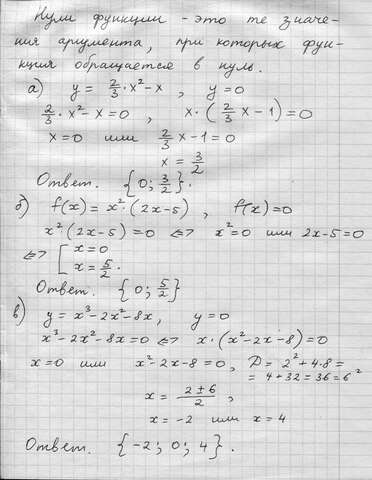 Нули функции - это те значе-
ния аргумента, при которых фун-
кция обращается в нуль.
а) y = 2/3 · x² - x , y = 0
2/3 · x² - x = 0 , x · (2/3 x - 1) = 0
x = 0 или 2/3 x - 1 = 0
x = 3/2
Ответ. {0; 3/2}.
б) f(x) = x² · (2x - 5) , f(x) = 0
x² · (2x - 5) = 0 <=> x² = 0 или 2x - 5 = 0
<=> [ x = 0
x = 5/2 .
Ответ. {0; 5/2}
в) y = x³ - 2x² - 8x, y = 0
x³ - 2x² - 8x = 0 <=> x · (x² - 2x - 8) = 0
x = 0 или x² - 2x - 8 = 0, D = 2² + 4·8 =
= 4 + 32 = 36 = 6²
x = (2 ± 6)/2 ,
x = -2 или x = 4
Ответ. {-2; 0; 4}.